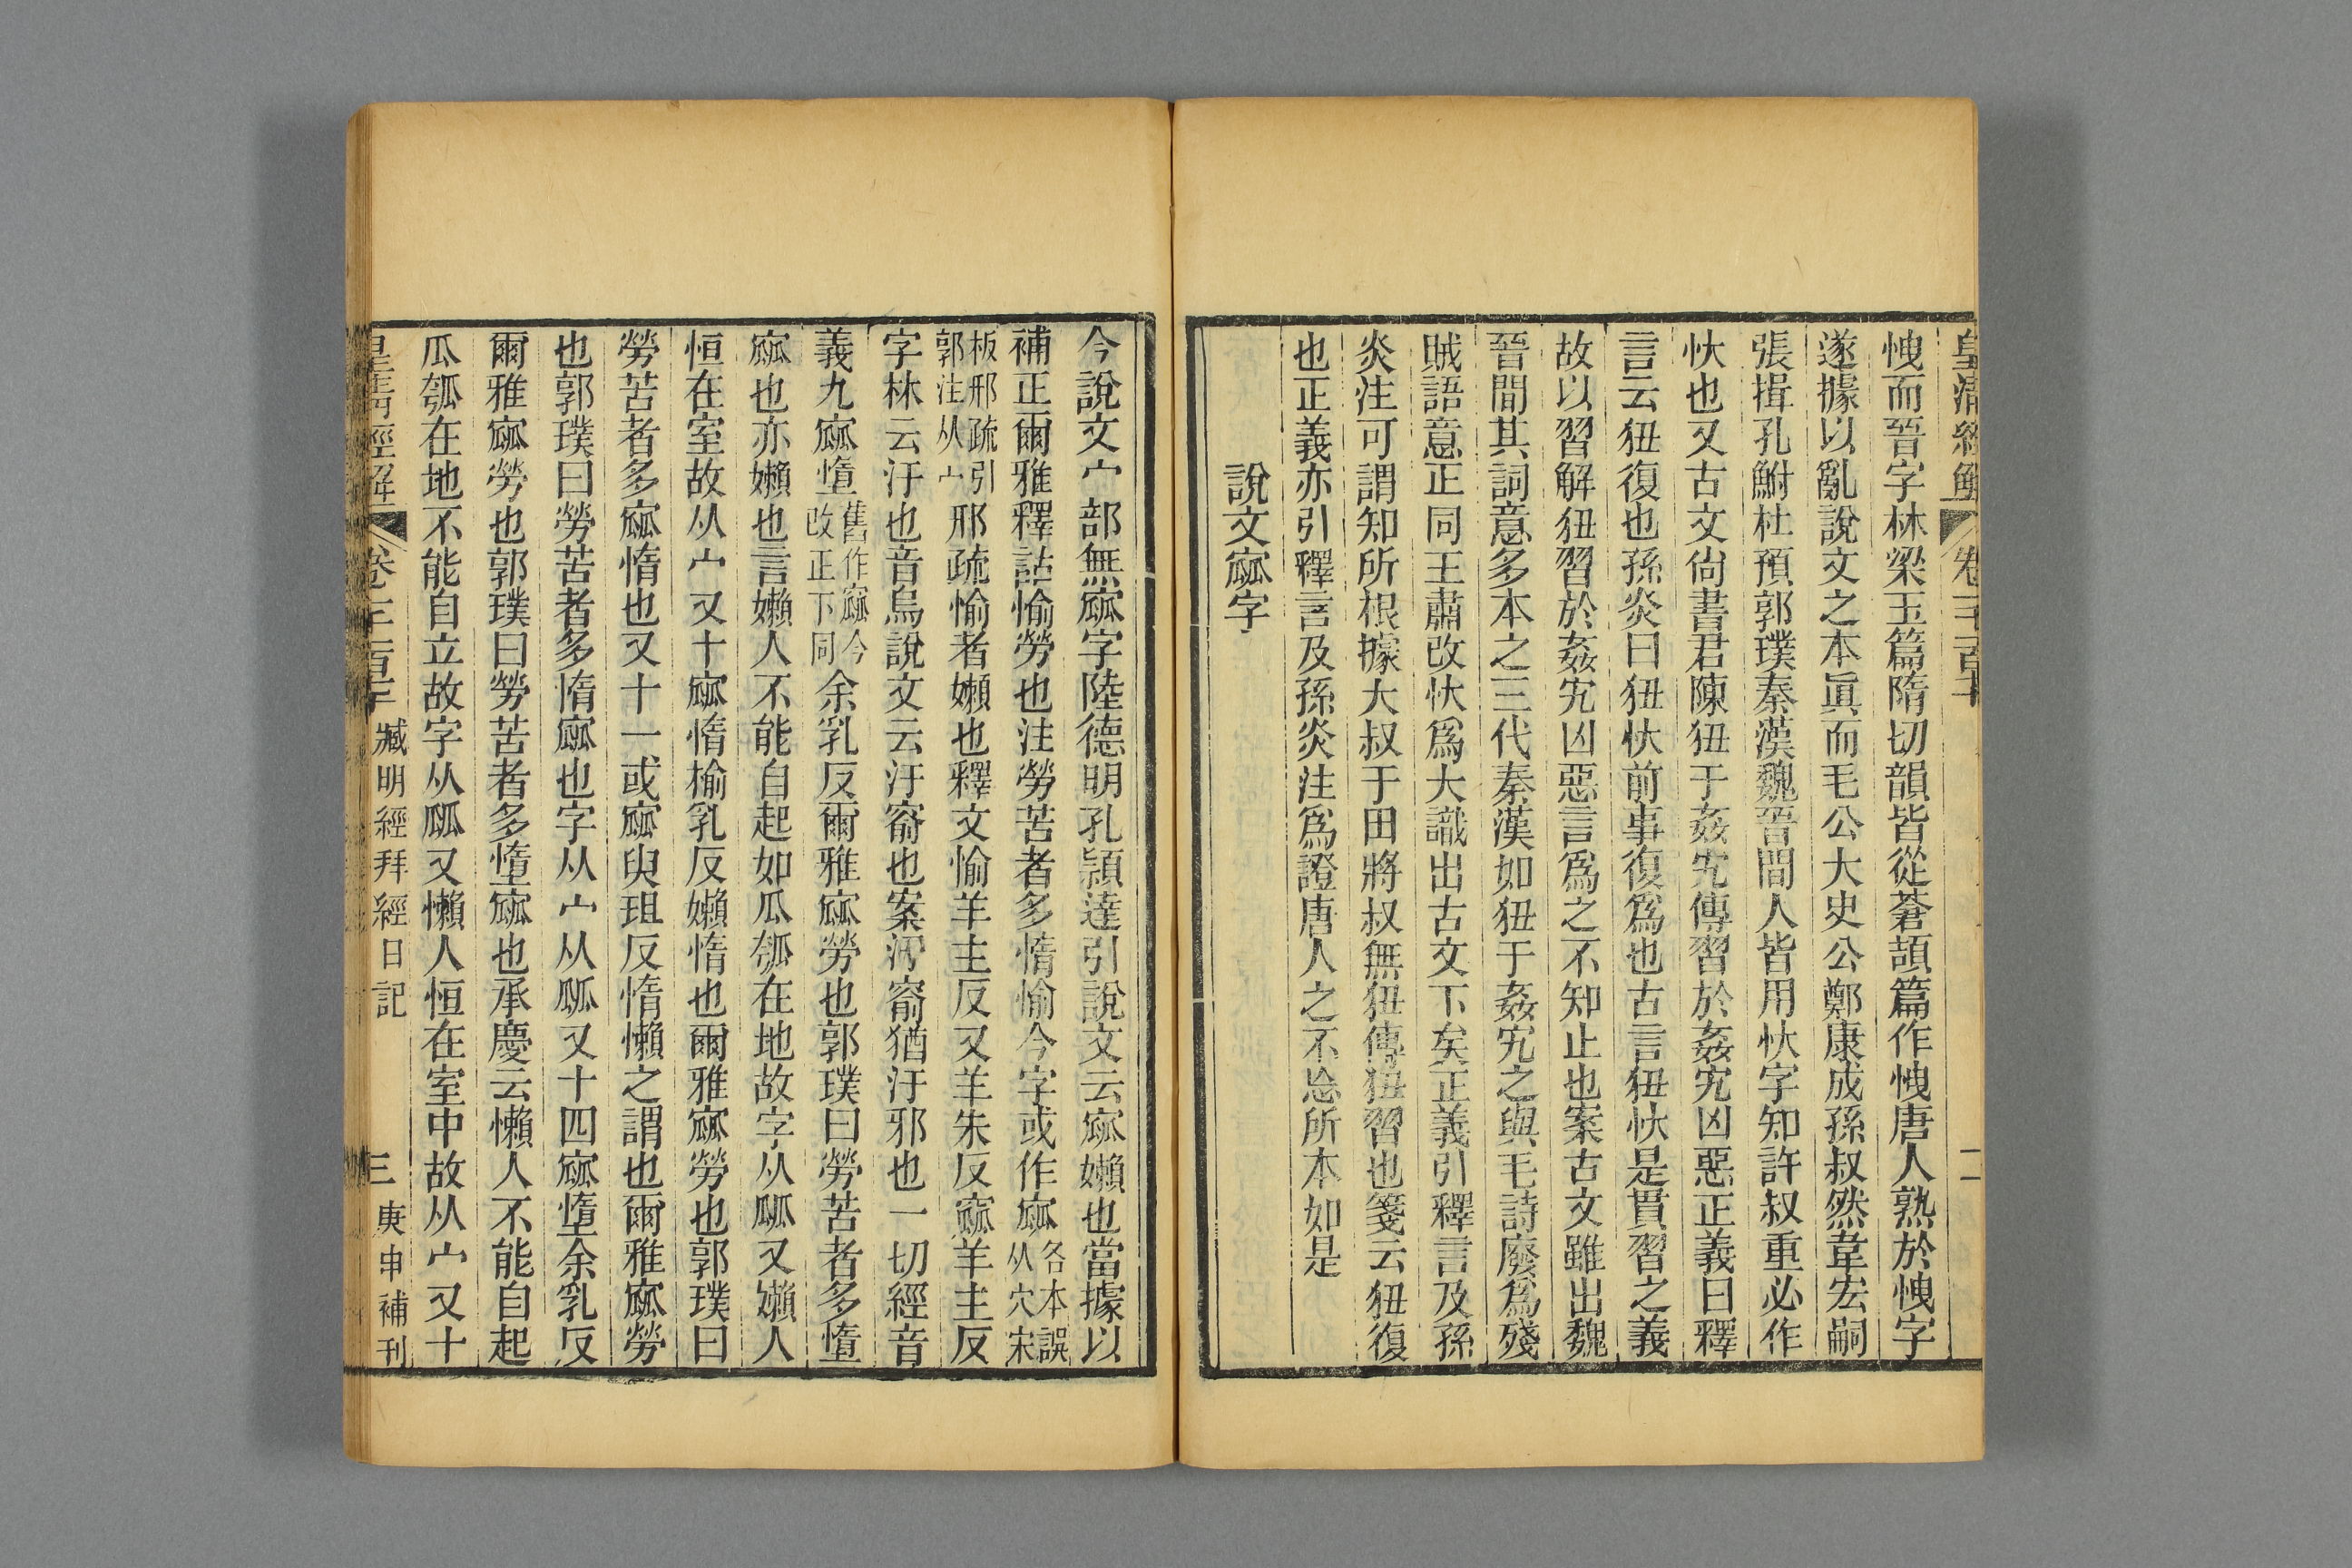 皇清經解 卷一千二百 二
愧而晉字林梁玉篇隋切韻皆從蒼頡篇作愧唐人熟於愧字
遂據以亂說文之本眞而毛公大史公鄭康成孫叔然韋宏嗣
張揖孔鮒杜預郭璞秦漢魏晉間人皆用忕字知許叔重必作
忕也又古文尙書君陳狃于姦宄傳習於姦宄凶惡正義曰釋
言云狃復也孫炎曰狃忕前事復爲也古言狃忕是貫習之義
故以習解狃習於姦宄凶惡言爲之不知止也案古文雖出魏
晉間其詞意多本之三代秦漢如狃于姦宄之與毛詩廢爲殘
賊語意正同王肅改忕爲大識出古文下矣正義引釋言及孫
炎注可謂知所根據大叔于田將叔無狃傳狃習也箋云狃復
也正義亦引釋言及孫炎注爲證唐人之不忘所本如是
說文㼌字
今說文宀部無㼌字陸德明孔穎達引說文云㼌嬾也當據以
補正爾雅釋詁愉勞也注勞苦者多惰愉今字或作㼌各本誤从穴宋
板邢疏引郭注从宀邢疏愉者嬾也釋文愉羊主反又羊朱反㼌羊主反
字林云汙也音烏說文云汙窬也案汚窬猶汙邪也一切經音
義九㼌墮舊作㼌今改正下同余乳反爾雅㼌勞也郭璞曰勞苦者多墮
㼌也亦嬾也言嬾人不能自起如瓜瓠在地故字从㼌又嬾人
恒在室故从宀又十㼌惰榆乳反嬾惰也爾雅㼌勞也郭璞曰
勞苦者多㼌惰也又十一或㼌臾珇反惰懶之謂也爾雅㼌勞
也郭璞曰勞苦者多惰㼌也字从宀从㼌又十四㼌墮余乳反
爾雅㼌勞也郭璞曰勞苦者多墮㼌也承慶云懶人不能自起
瓜瓠在地不能自立故字从㼌又懶人恒在室中故从宀又十
皇清經解 卷一千二百 臧明經拜經日記 三 庚申補刊